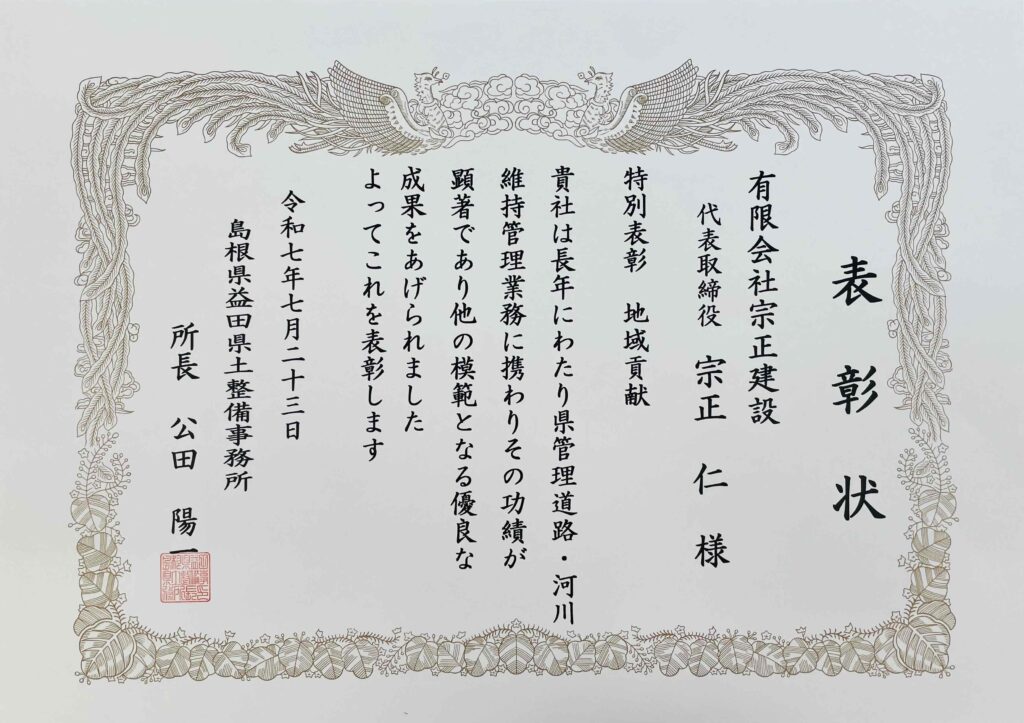 表彰状
有限会社宗正建設
代表取締役 宗正 仁 様
特別表彰 地域貢献
貴社は長年にわたり県管理道路・河川
維持管理業務に携わりその功績が
顕著であり他の模範となる優良な
成果をあげられました
よってこれを表彰します
令和七年七月二十三日
島根県益田県土整備事務所
所長 公田 陽一